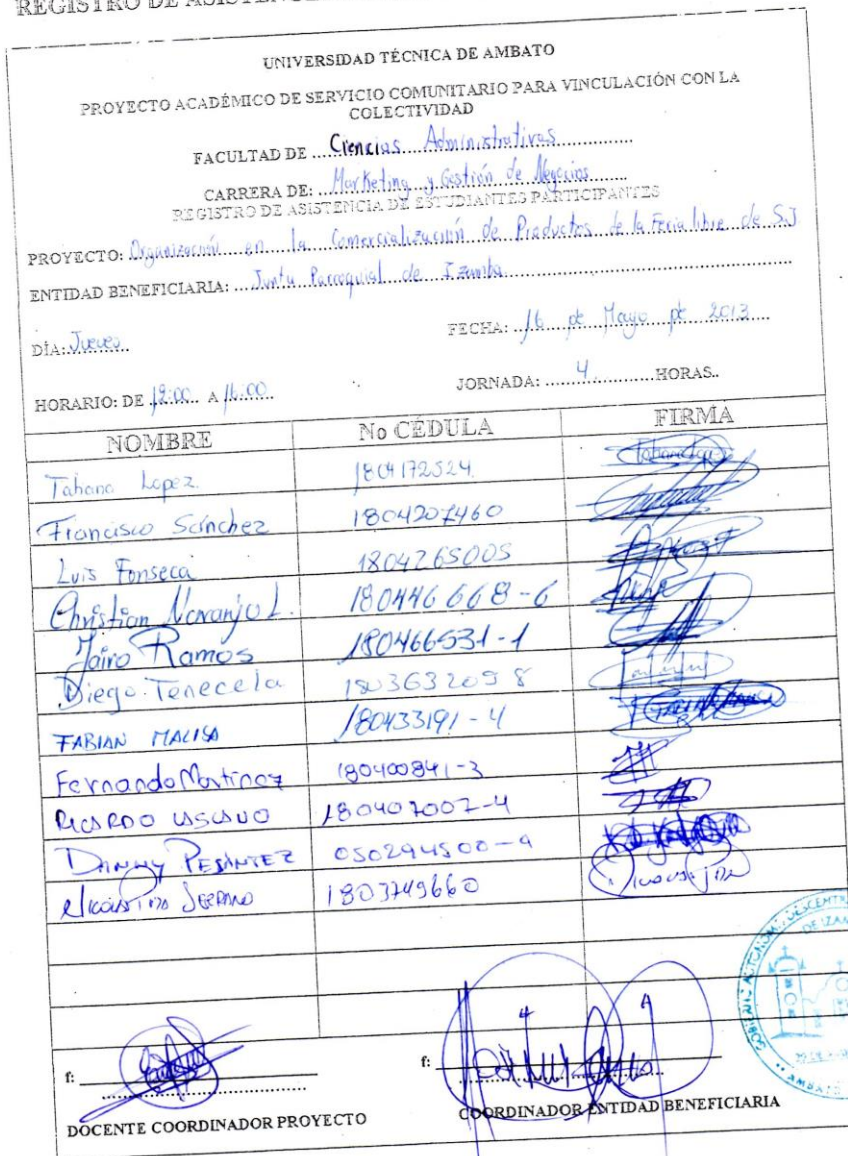 REGISTRO DE ASISTENC
UNIVERSIDAD TÉCNICA DE AMBATO
PROYECTO ACADÉMICO DE SERVICIO COMUNITARIO PARA VINCULACIÓN CON LA
COLECTIVIDAD
FACULTAD DE ....Ciencias Administrativas................
CARRERA DE: ...Marketing y Gestión de Negocios........
REGISTRO DE ASISTENCIA DE ESTUDIANTES PARTICIPANTES
PROYECTO: Organización en la Comercialización de Productos de la Feria libre de S.J
ENTIDAD BENEFICIARIA: ....Junta Parroquial de Izamba........
DÍA: Jueves
FECHA: ...16 de Mayo de 2013....
HORARIO: DE 12:00 A 16:00
JORNADA: ......4......HORAS..
NOMBRE No CÉDULA FIRMA
Tahana Lopez. 1804172524
Francisco Sánchez 1804207460
Luis Fonseca 180426500S
Christian Naranjo L. 180446668-6
Jairo Ramos 180466531-1
Diego Tenecela 1803632098
FABIAN MALISA 180433191-4
Fernando Martinez 180400841-3
RICARDO 180407007-4
DANNY PESÁNTEZ 050294500-9
1803749660
f:
DOCENTE COORDINADOR PROYECTO
f:
COORDINADOR ENTIDAD BENEFICIARIA
GOBIERNO AUTONOMO DESCENTR
DE IZAM
AMBATO